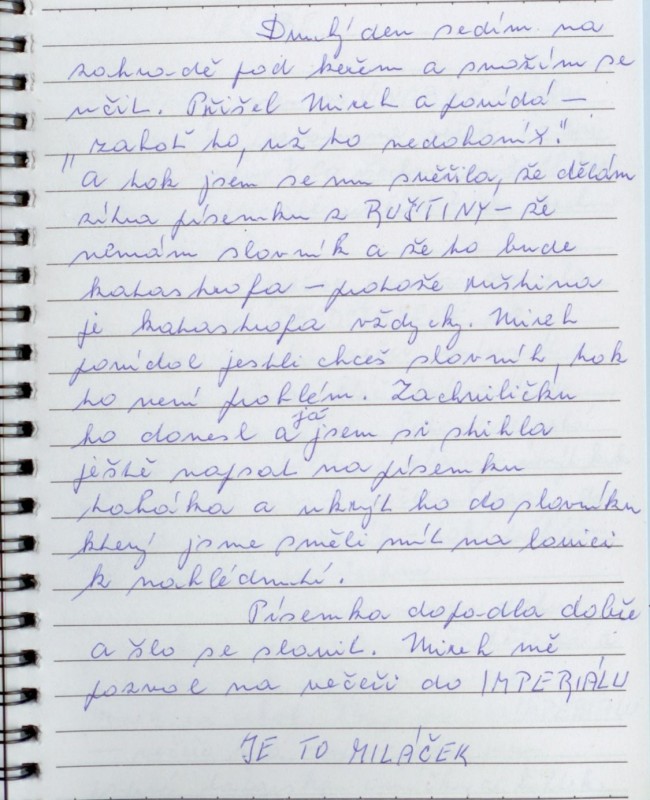 Druhý den sedím na
zahradě pod keřem a snažím se
učit. Přišel Mirek a povídá –
„zahoď to, už to nedohoníš."
A tak jsem se mu svěřila, že dělám
zítra písemku z RUŠTINY – že
nemám slovník a že to bude
katastrofa – protože ruština
je katastrofa vždycky. Mirek
povídal jestli chceš slovník, tak
to není problém. Zachviličku
ho donesl a já jsem si stihla
ještě napsat na písemku
taháka a ukrýt ho do slovníku
který jsme směli mít na lavici
k nahlédnutí.
Písemka dopadla dobře
a šlo se slavit. Mirek mě
pozval na večeři do IMPERIÁLU
JE TO MILÁČEK